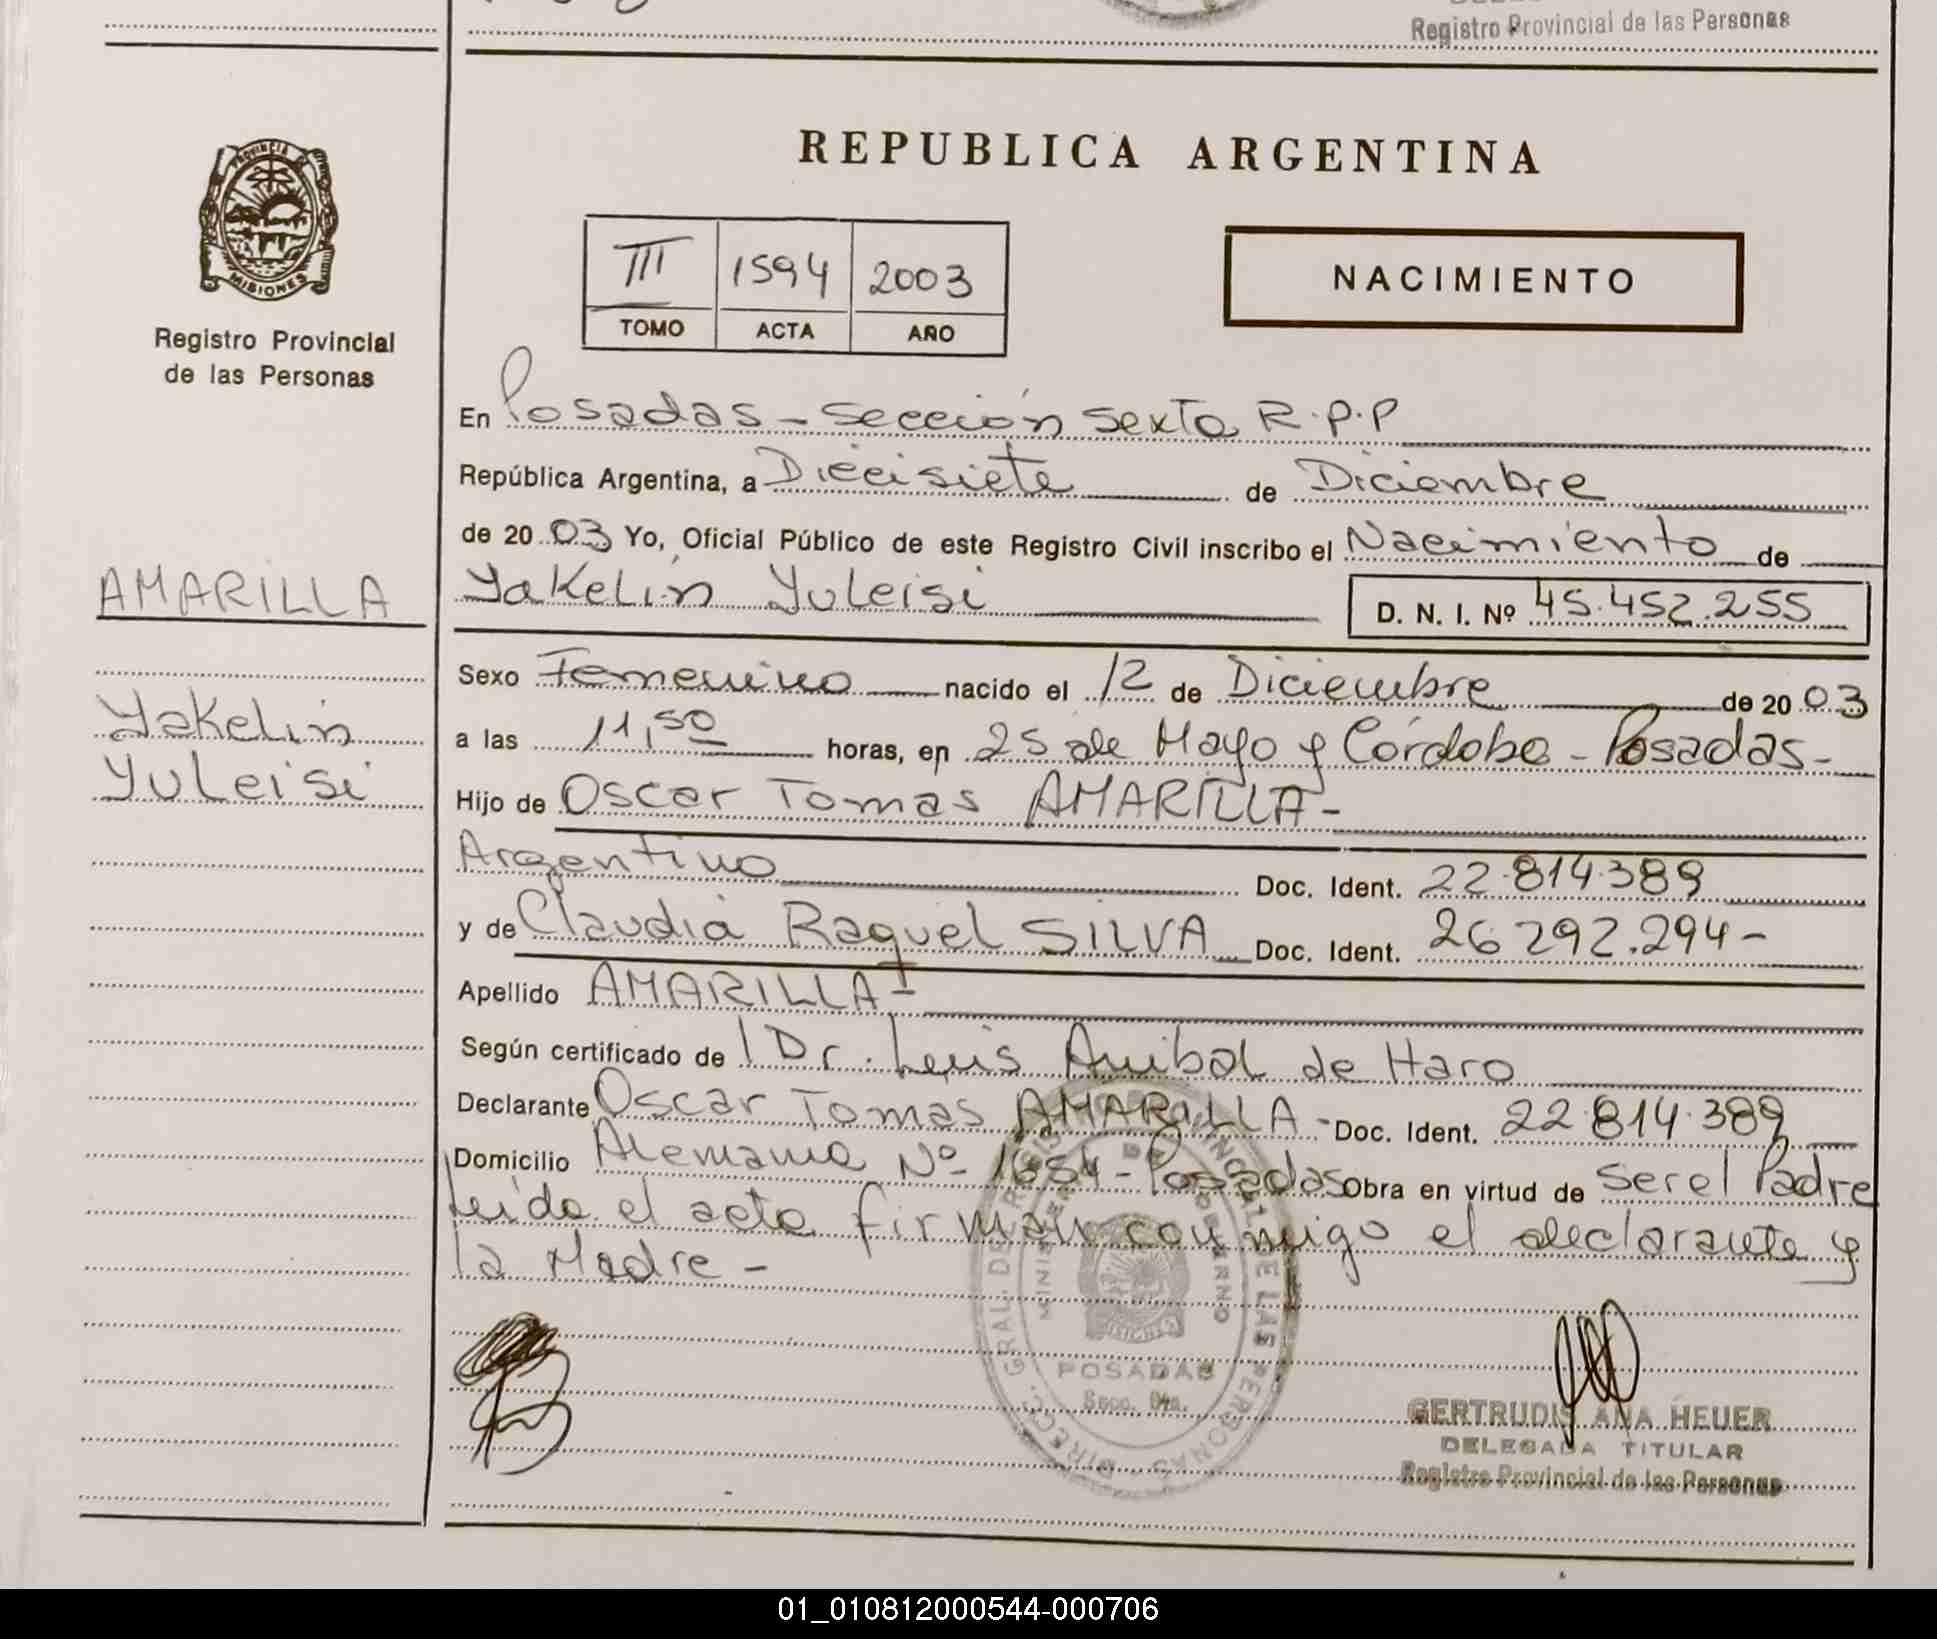 Registro Provincial de las Personas
PROVINCIA DE
MISIONES
Registro Provincial
de las Personas
REPUBLICA ARGENTINA
III 1594 2003
TOMO ACTA AÑO
NACIMIENTO
En Posadas - Sección Sexta R.P.P
República Argentina, a Diecisiete de Diciembre
de 2003 Yo, Oficial Público de este Registro Civil inscribo el Nacimiento de
AMARILLA
Yakelin Yuleisi D. N. I. Nº 45.452.255
Sexo Femenino nacido el 12 de Diciembre de 2003
Yakelin
Yuleisi
a las 11,50 horas, en 25 de Mayo y Córdoba - Posadas-
Hijo de Oscar Tomas AMARILLA-
Argentino Doc. Ident. 22.814.389
y de Claudia Raquel SILVA Doc. Ident. 26.292.294-
Apellido AMARILLA-
Según certificado de Dr. Luis Anibal de Haro
Declarante Oscar Tomas AMARILLA- Doc. Ident. 22.814.389
Domicilio Alemania Nº 1654-Posadas Obra en virtud de ser el Padre
leída el acta firman conmigo el declarante y
la Madre -
DIRECC. GRAL. DE REGISTRO PROVINCIAL DE LAS PERSONAS
MINISTERIO DE GOBIERNO
MISIONES
POSADAS
GERTRUDIS ANA HEUER
DELEGADA TITULAR
Registro Provincial de las Personas
01_010812000544-000706